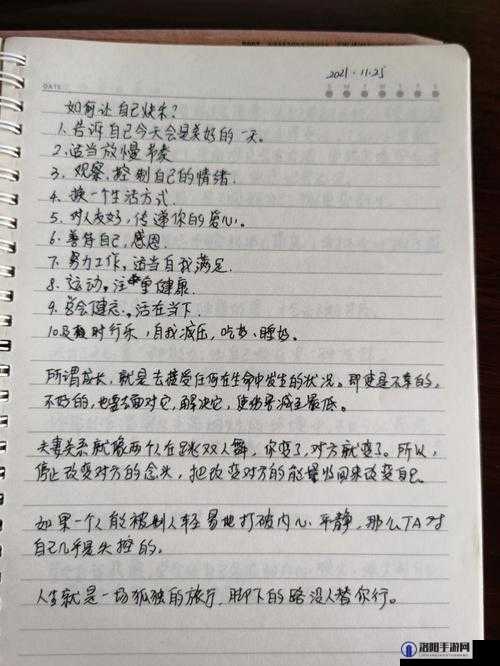 2021.11.25
DATE
如何让自己快乐?
1.告诉自己今天会是美好的一天。
2.适当放慢节奏
3.观察,控制自己的情绪.
4.换一个生活方式.
5.对人友好,传递你的爱心。
6.善待自己,感恩.
7.努力工作,适当自我满足.
8.运动,注重健康.
9.学会健忘.活在当下.
10及时行乐,自我减压,吃好、睡好.
所谓成长,就是去接受任何在生命中发生的状况。即使是不幸的,
不好的,也要去面对它,解决它,使伤害减至最低。
夫妻关系就像两个人在跳双人舞,你变了,对方就变了。所以,
停止改变对方的念头,把改变对方的能量收回来改变自己.
如果一个人能被别人轻易地打破内心平静,那么TA对
自己几乎是失控的.
人生就是一场孤独的旅行,脚下的路没人替你行。
洛阳手游网